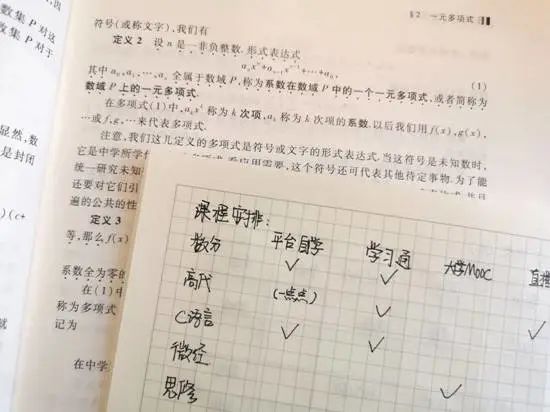 §2 一元多项式
符号(或称文字),我们有
定义2 设 n 是一非负整数.形式表达式
aₙxⁿ+aₙ₋₁xⁿ⁻¹+…+a₀, (1)
其中 a₀,a₁,…,aₙ 全属于数域 P,称为系数在数域 P 中的一个一元多项式,或者简称为
数域 P 上的一元多项式.
在多项式(1)中,aₖxᵏ 称为 k 次项,aₖ 称为 k 次项的系数.以后我们用 f(x),g(x),
…或 f,g,…来代表多项式.
注意,我们这儿定义的多项式是符号或文字的形式表达式.当这符号是未知数时,
它是中学所学 需要,这个符号还可代表其他待定事物.为了能
统一研究未知
还要对它们引
遍的公共的性
定义3
等,那么 f(x)
系数全为零的
在(1)中
称为多项式
记为
在中学
数集 P 对这
数集 P 对于
显然,数
是封闭
)(c+
就
课程安排:
平台自学 学习通 大学MOOC 直播
数分 ✓ ✓
高代 (一点点) ✓
C语言 ✓ ✓ ✓
微经
思修 ✓